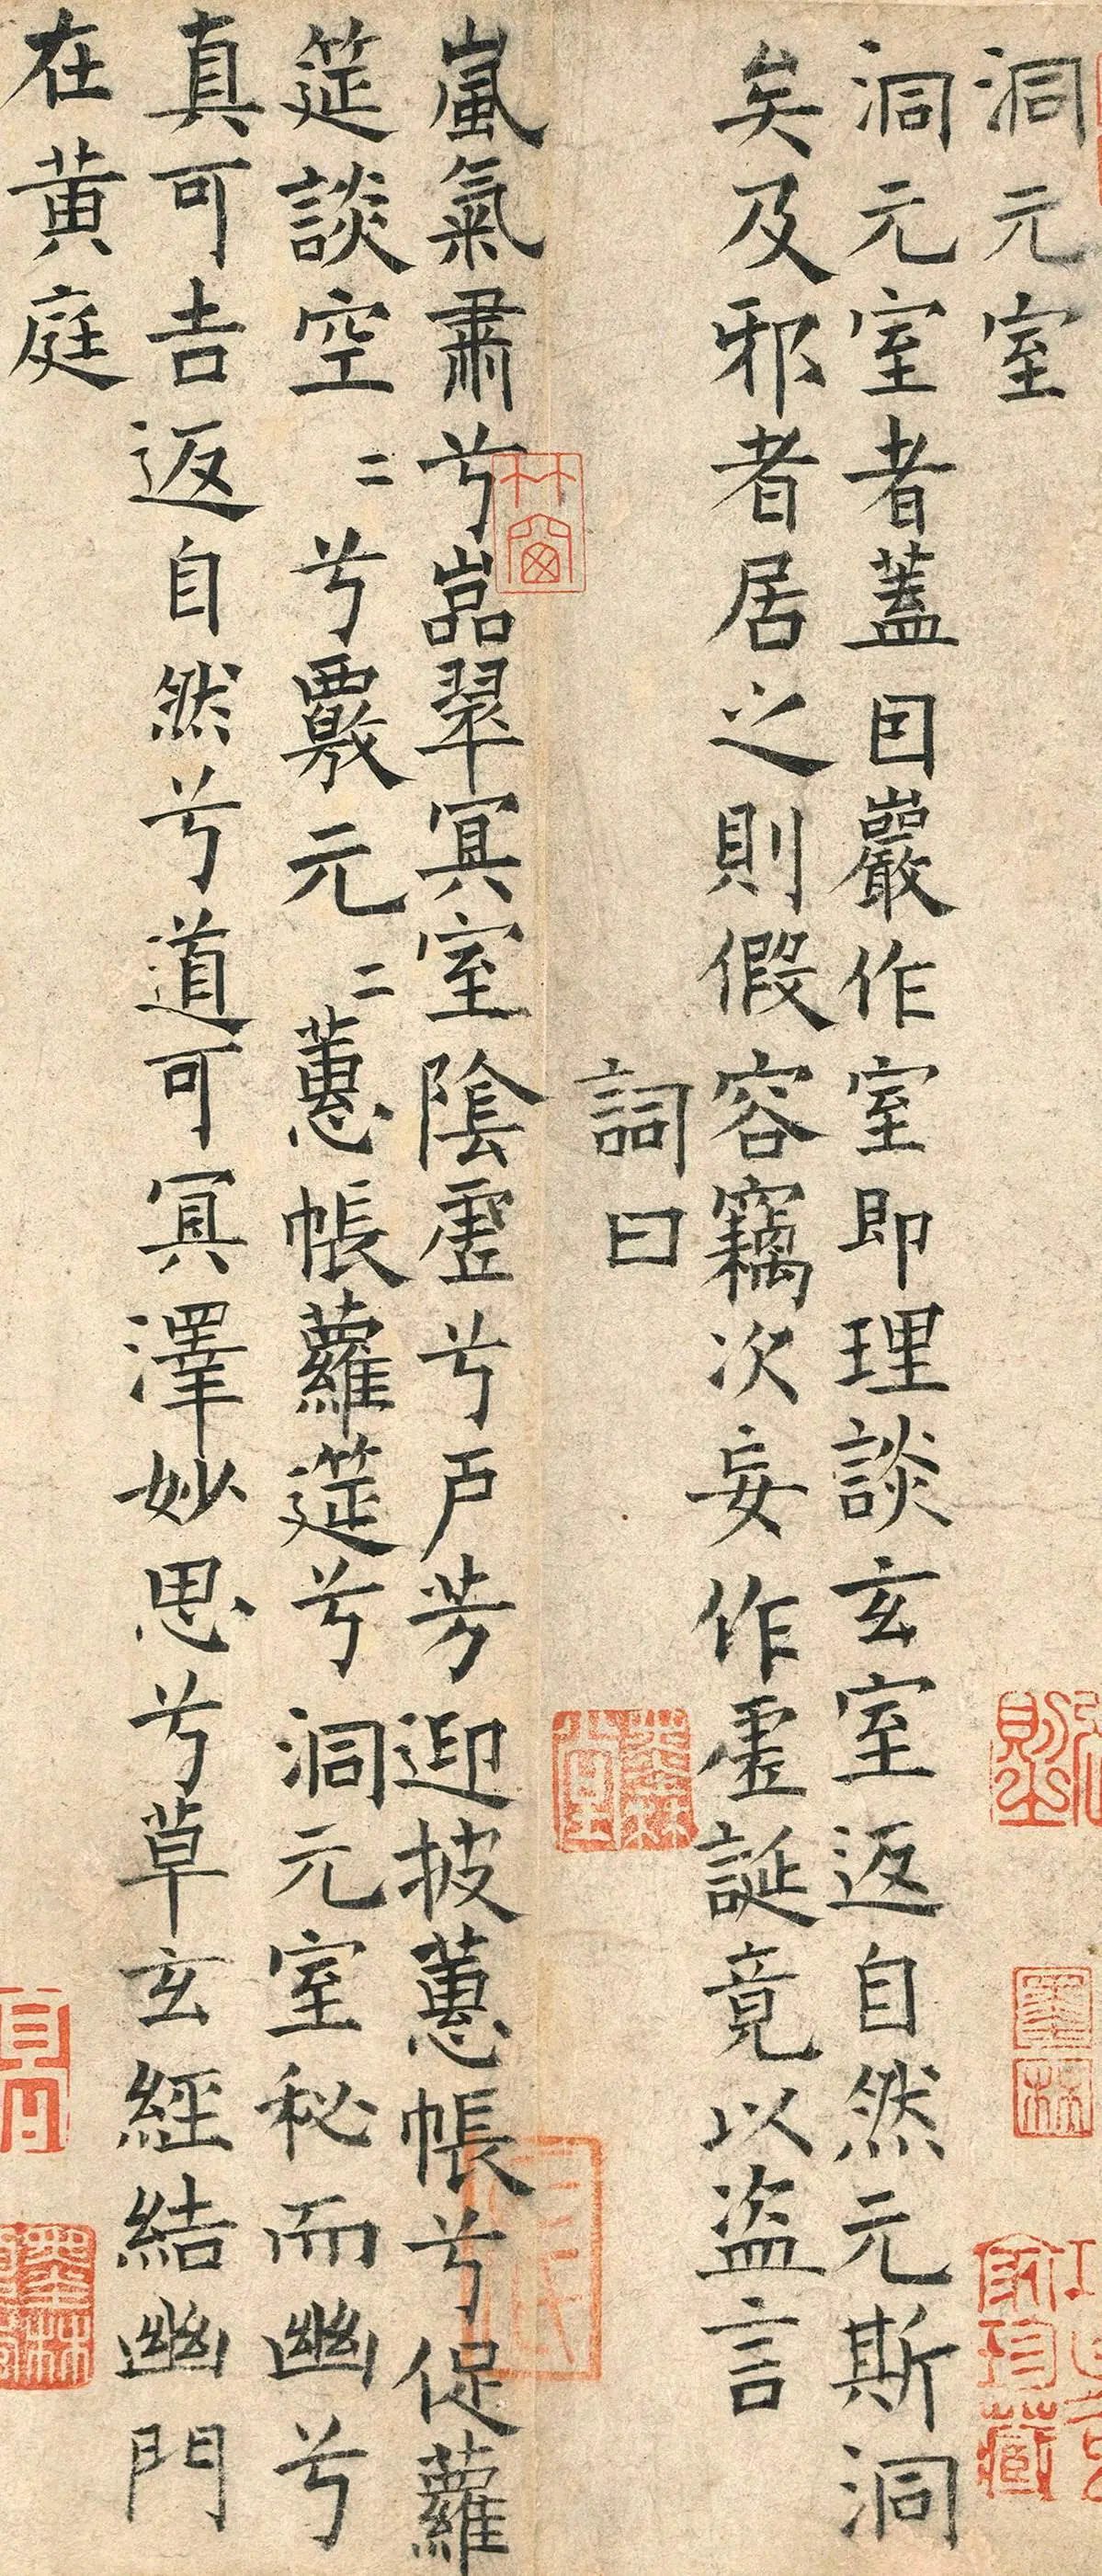 洞元室
洞元室者蓋因巖作室即理談玄室返自然元斯洞
矣及邪者居之則假容竊次妄作虛誕竟以盜言
詞曰
嵐氣肅兮嵓翠冥室陰虛兮戶芳迎披蕙帳兮促蘿
筵談空〻兮覈元〻蕙帳蘿筵兮洞元室秘而幽兮
真可吉返自然兮道可冥澤妙思兮草玄經結幽門
在黃庭
竹窗
墨林